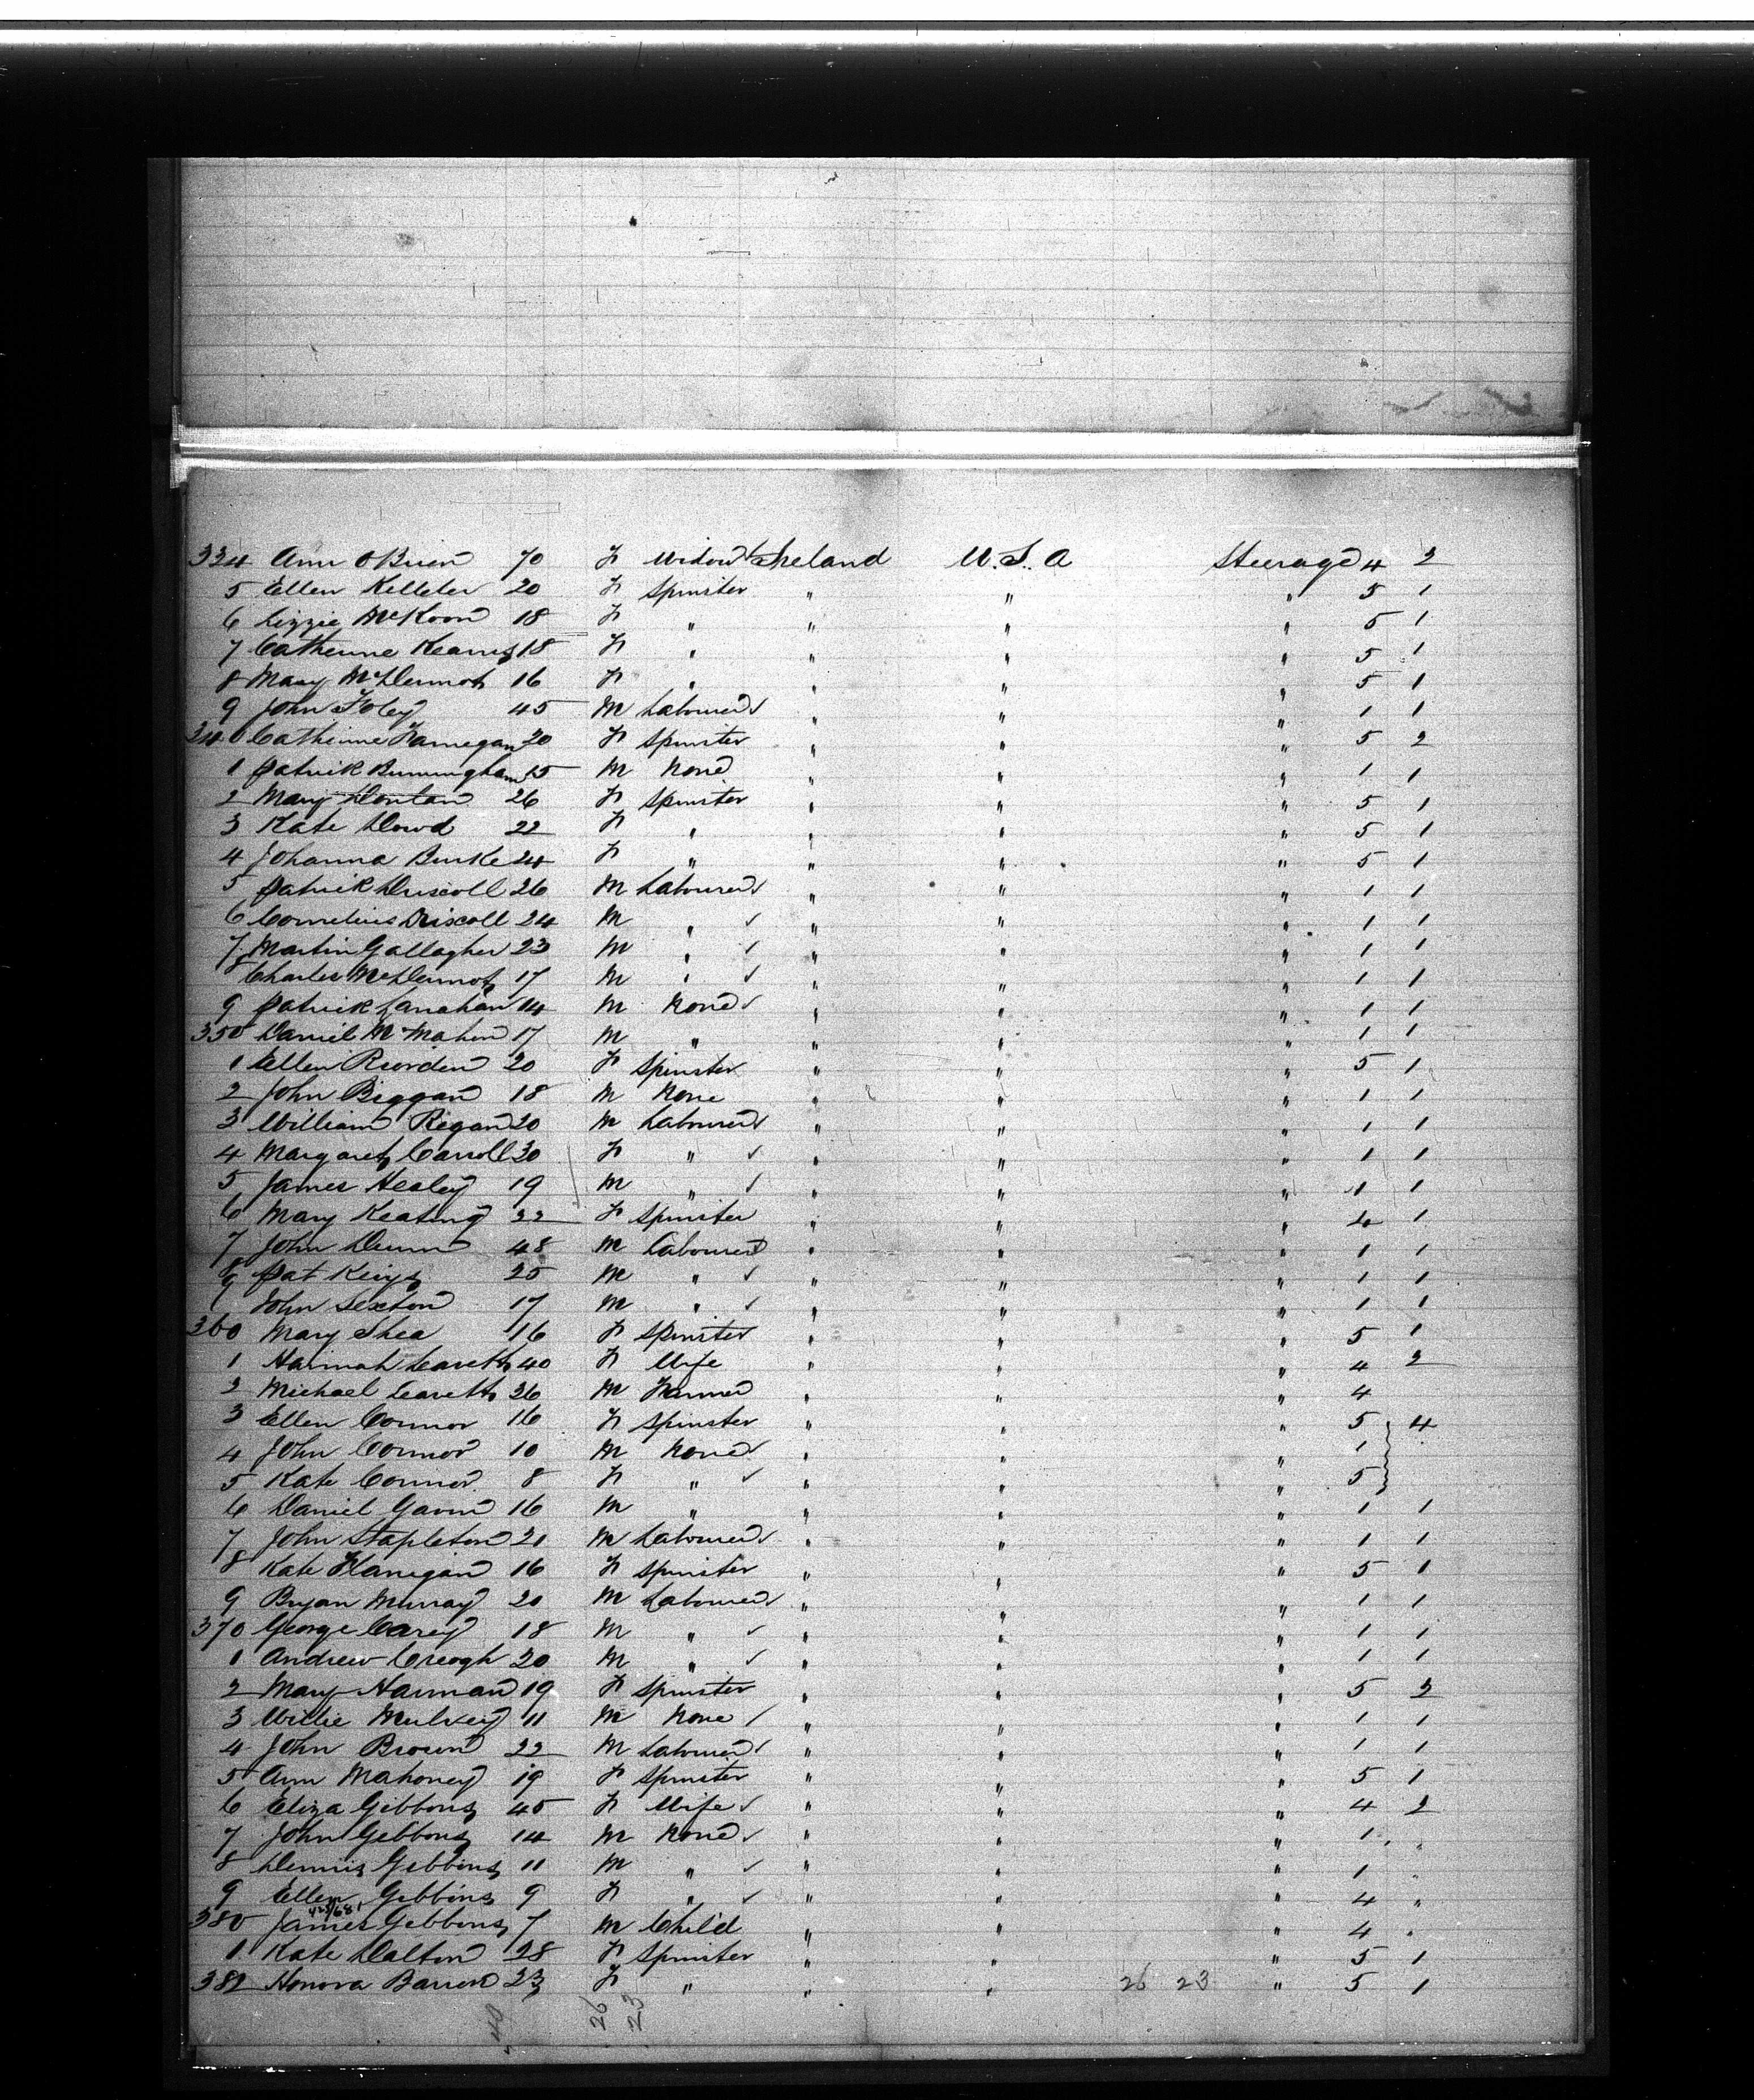 334 Ann OBrien 70 F Widow Ireland U.S.A Steerage 4 2
5 Ellen Kelleler 20 F Spinster " " " 5 1
6 Lizzie McKoon 18 F " " " " 5 1
7 Catherine Kearns 18 F " " " " 5 1
8 Mary McDermot 16 F " " " " 5 1
9 John Foley 45 M Labourer " " " 1 1
340 Catherine 20 F Spinster " " " 5 2
1 Patrick Burmingham 15 M None " " " 1 1
2 Mary Donlan 26 F Spinster " " " 5 1
3 Kate Dowd 22 F " " " " 5 1
4 Johanna Burke 24 F " " " " 5 1
5 Patrick Driscoll 26 M Labourer " " " 1 1
6 Cornelius Driscoll 24 M " " " " 1 1
7 Martin Gallagher 23 M " " " " 1 1
8 Charles McDermot 17 M " " " " 1 1
9 Patrick Lanahan 14 M None " " " 1 1
350 Daniel McMahon 17 M " " " " 1 1
1 Ellen Riorden 20 F Spinster " " " 5 1
2 John Biggan 18 M None " " " 1 1
3 William Regan 20 M Labourer " " " 1 1
4 Margaret Carroll 30 F " " " " 1 1
5 James Healey 19 M " " " " 1 1
6 Mary Keating 22 F Spinster " " " 4 1
7 John Dunn 48 M Labourer " " " 1 1
8 Pat Keys 25 M " " " " 1 1
9 John Sexton 17 M " " " " 1 1
360 Mary Shea 16 F Spinster " " " 5 1
1 Hannah Leavett 40 F Wife " " " 4 2
2 Michael Leavett 36 M Farmer " " " 4
3 Ellen Connor 16 F Spinster " " " 5 4
4 John Connor 10 M None " " " 1
5 Kate Connor 8 F " " " " 5
6 Daniel Gavin 16 M " " " " 1 1
7 John Stapleton 21 M Labourer " " " 1 1
8 Kate Flanigan 16 F Spinster " " " 5 1
9 Bryan Murray 20 M Labourer " " " 1 1
370 George Carey 18 M " " " " 1 1
1 Andrew Creogh 20 M " " " " 1 1
2 Mary Harman 19 F Spinster " " " 5 2
3 Willie Mulvey 11 M None " " " 1 1
4 John Brown 22 M Labourer " " " 1 1
5 Ann Mahoney 19 F Spinster " " " 5 1
6 Eliza Gibbons 45 F Wife " " " 4 2
7 John Gibbons 14 M None " " " 1 "
8 Dennis Gibbons 11 M " " " " 1 "
9 Ellen Gibbins 9 F " " " " 4 "
380 James Gibbons 7 M Child " " " 4 "
1 Kate Dalton 28 F Spinster " " " 5 1
382 Honora Barren 23 F " " " 26 23 " 5 1
26 23